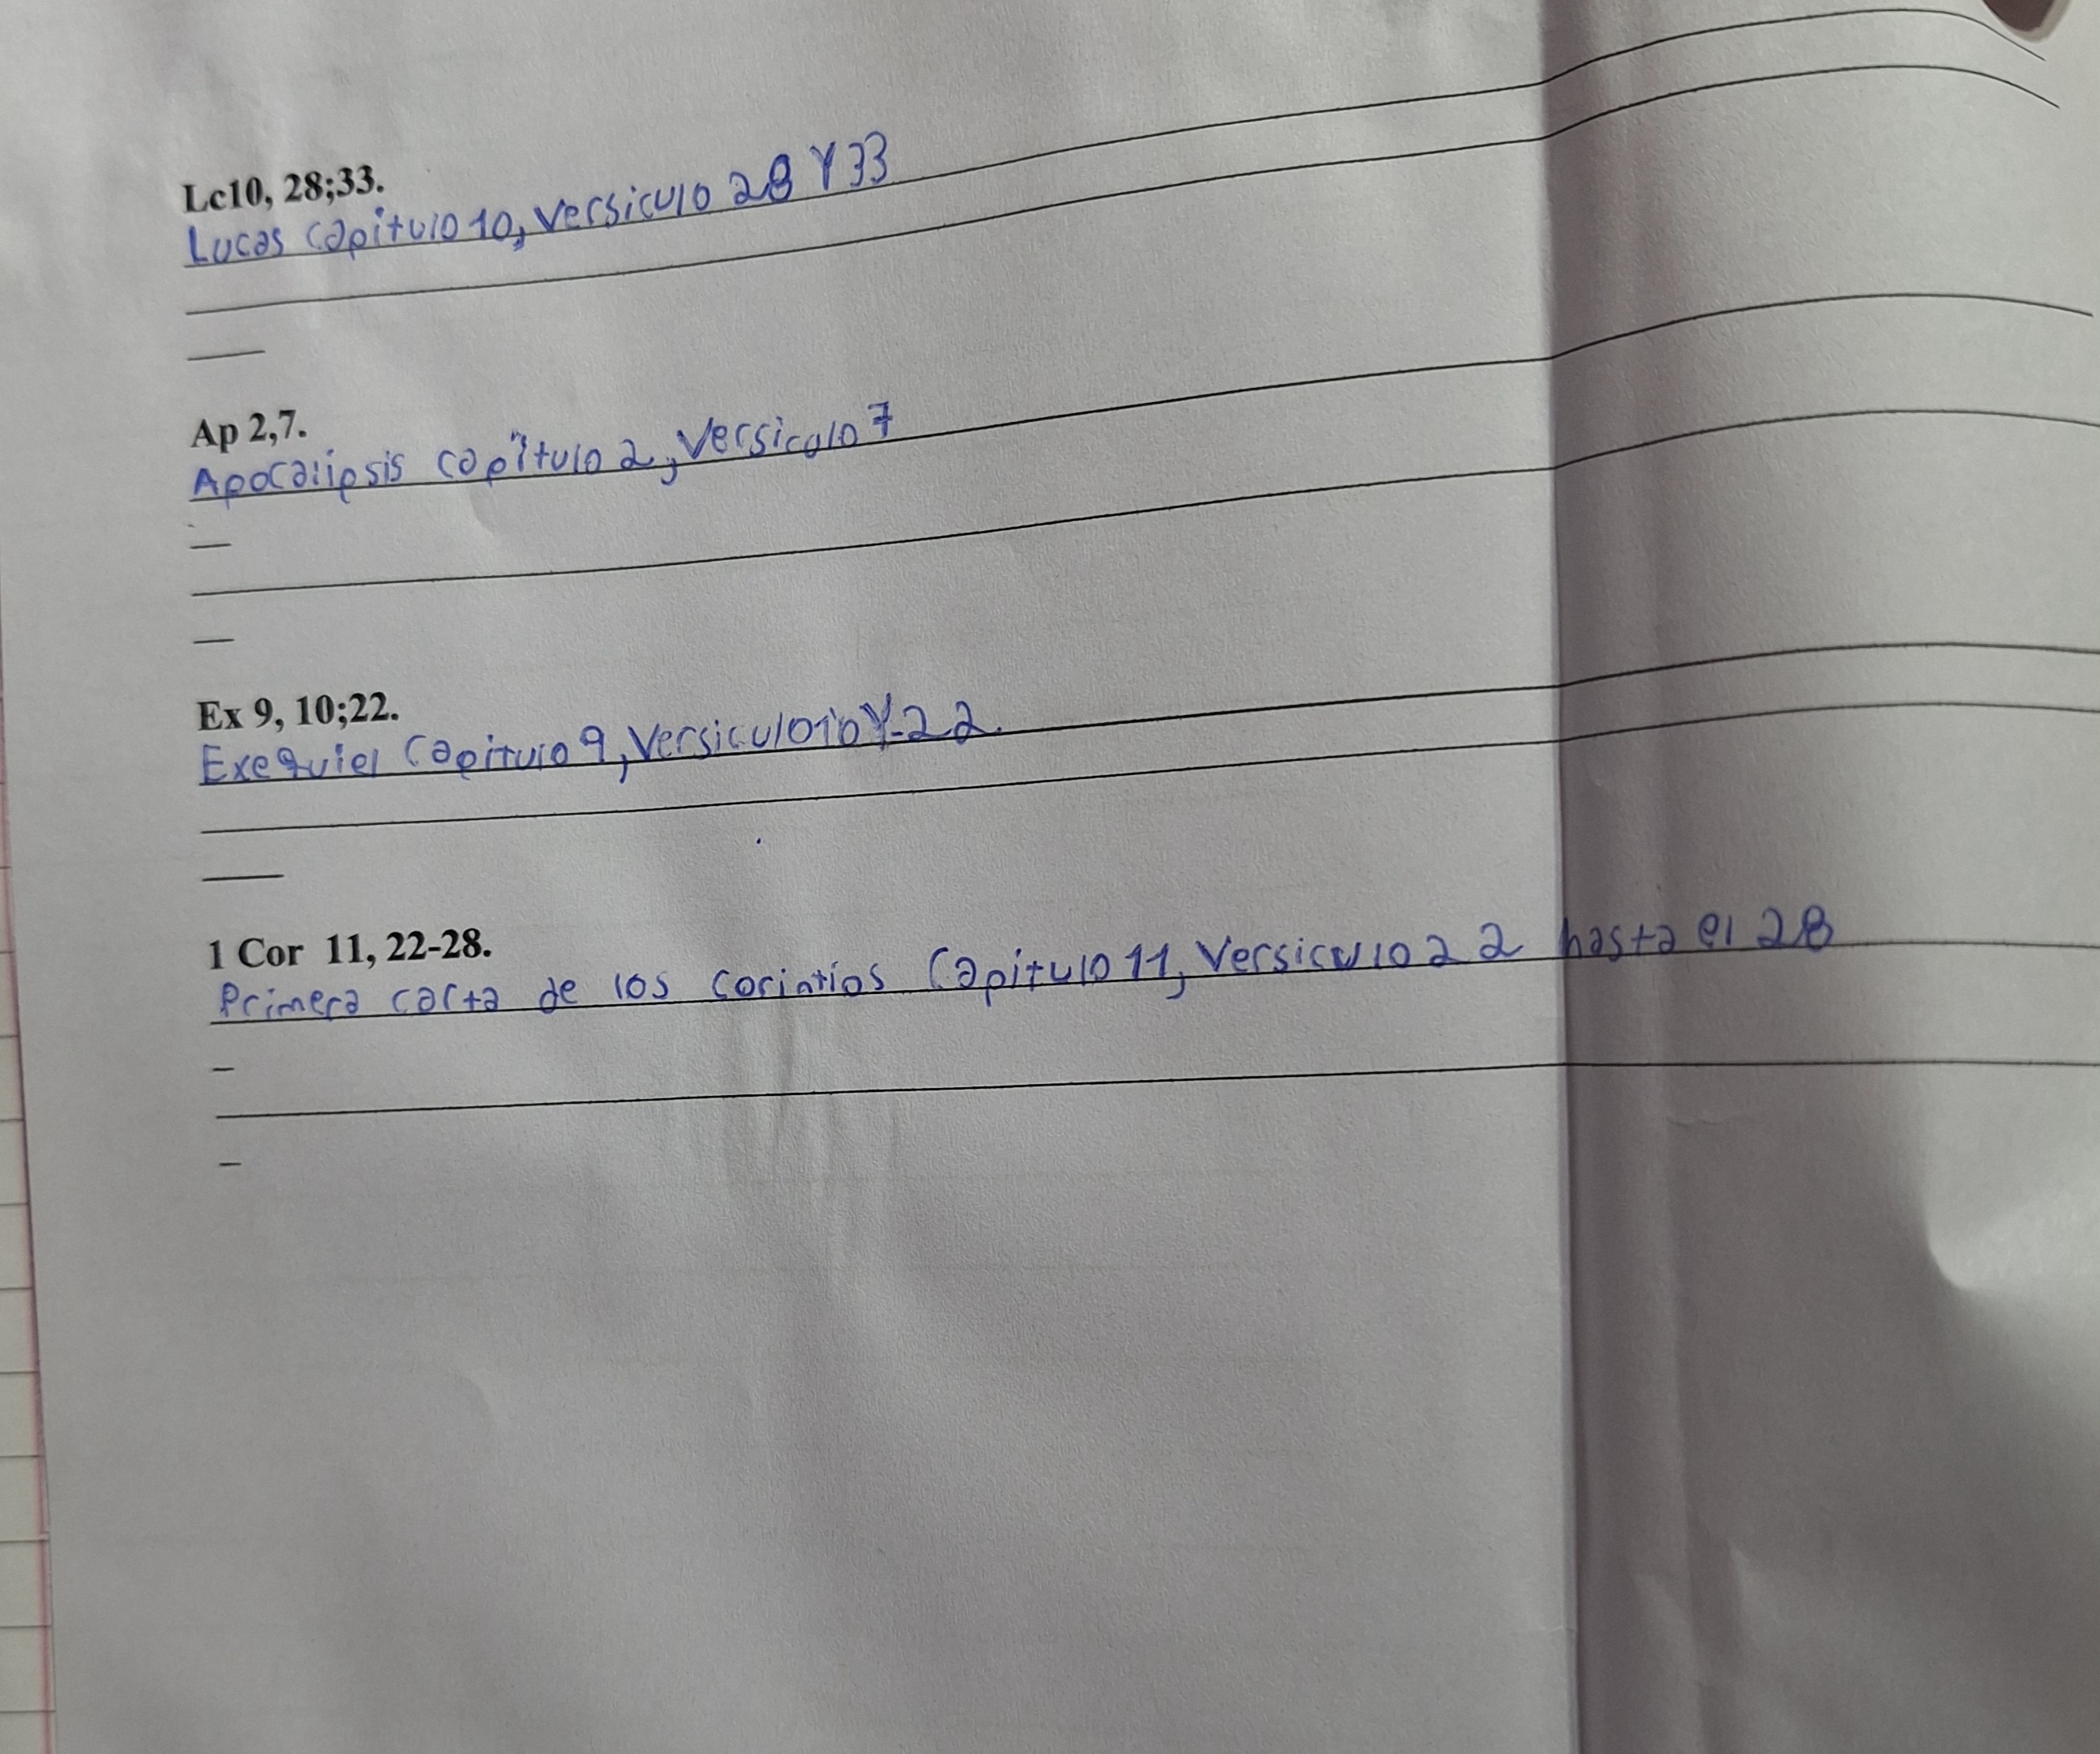 Lc10, 28;33.
Lucas capitulo 10, versiculo 28 Y 33
Ap 2,7.
Apocalipsis capitulo 2, versiculo 7
Ex 9, 10;22.
Exequiel capitulo 9, versiculo 10 Y 22.
1 Cor 11, 22-28.
Primera carta de los corintios capitulo 11, versiculo 22 hasta el 28